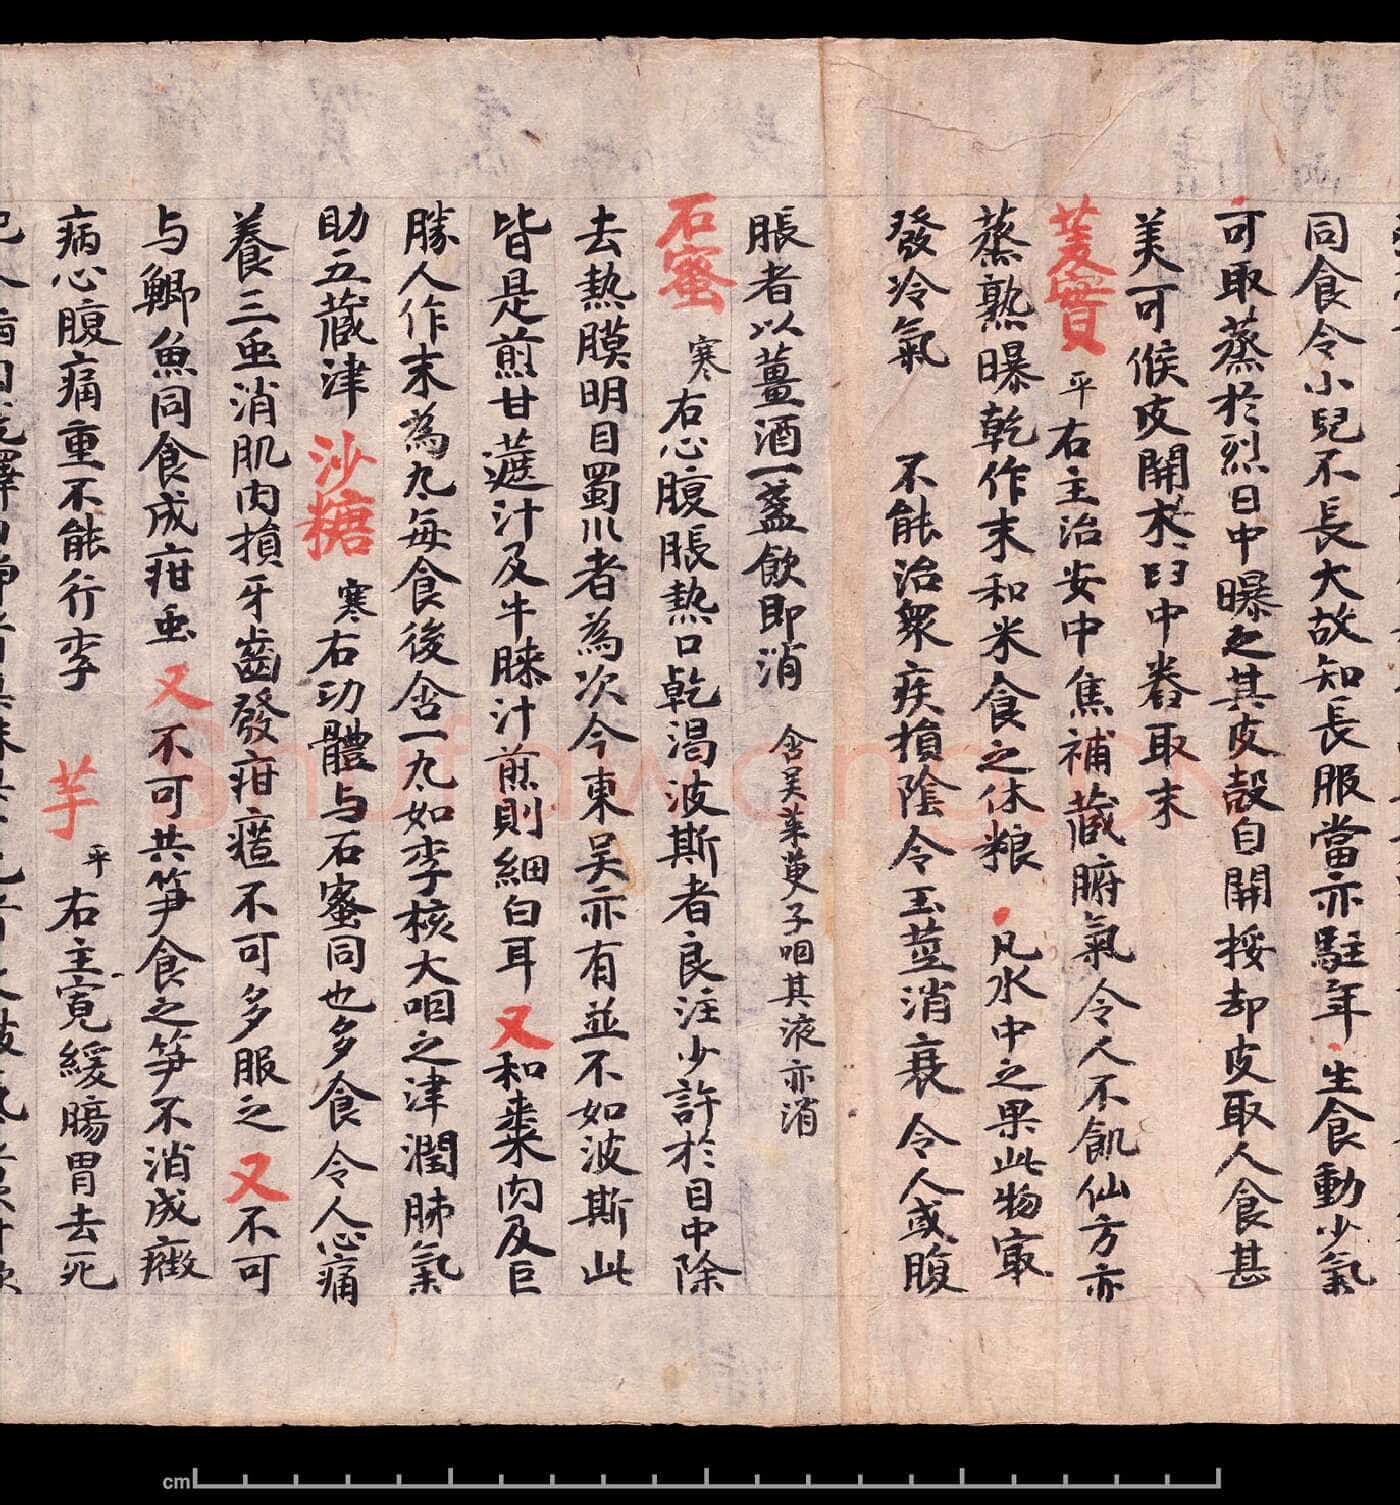 同食令小兒不長大故知長服當亦駐年生食動少氣
可取蒸於烈日中曝之其皮殼自開挼却皮取人食甚
美可候皮開末臼中舂取末
蓤實 平 右主治安中焦補蔵腑氣令人不飢仙方亦
蒸熟曝乾作末和米食之休粮 凡水中之果此物㝡
發冷氣 不能治衆疾損陰令玉莖消衰令人或腹
脹者以薑酒一盞飲即消 含吴茱萸子咽其液亦消
石蜜 寒 右心腹脹熱口乾渴波斯者良注少許於目中除
去熱膜明目蜀川者為次今東吴亦有並不如波斯此
皆是煎甘蔗汁及牛𦛨汁煎則細白耳 又和棗肉及巨
勝人作末為丸每食後含一丸如李核大咽之津潤肺氣
助五蔵津 沙糖 寒 右功體与石蜜同也多食令人心痛
養三虫消肌肉損牙齒發疳𤻊不可多服之 又不可
与鯽魚同食成疳虫 又不可共笋食之笋不消成癥
病心腹痛重不能行李 芋 平 右主寛緩腸胃去死